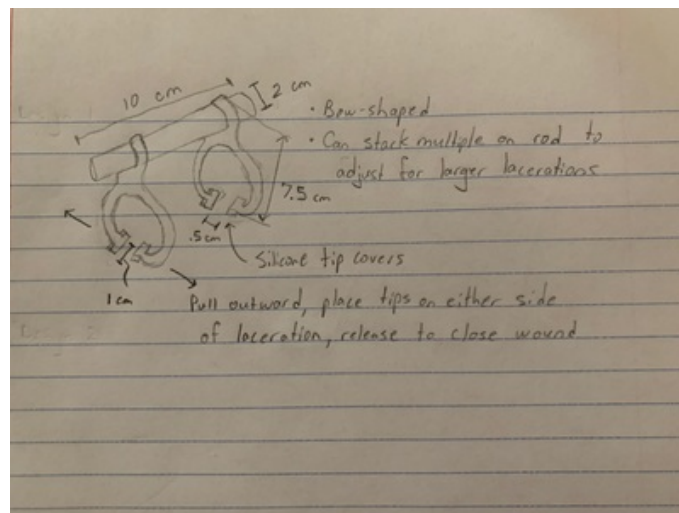 10 cm
2 cm
• Bow-shaped
• Can stack multiple on rod to
adjust for larger lacerations
7.5 cm
.5cm
Silicone tip covers
1 cm
Pull outward, place tips on either side
of laceration, release to close wound